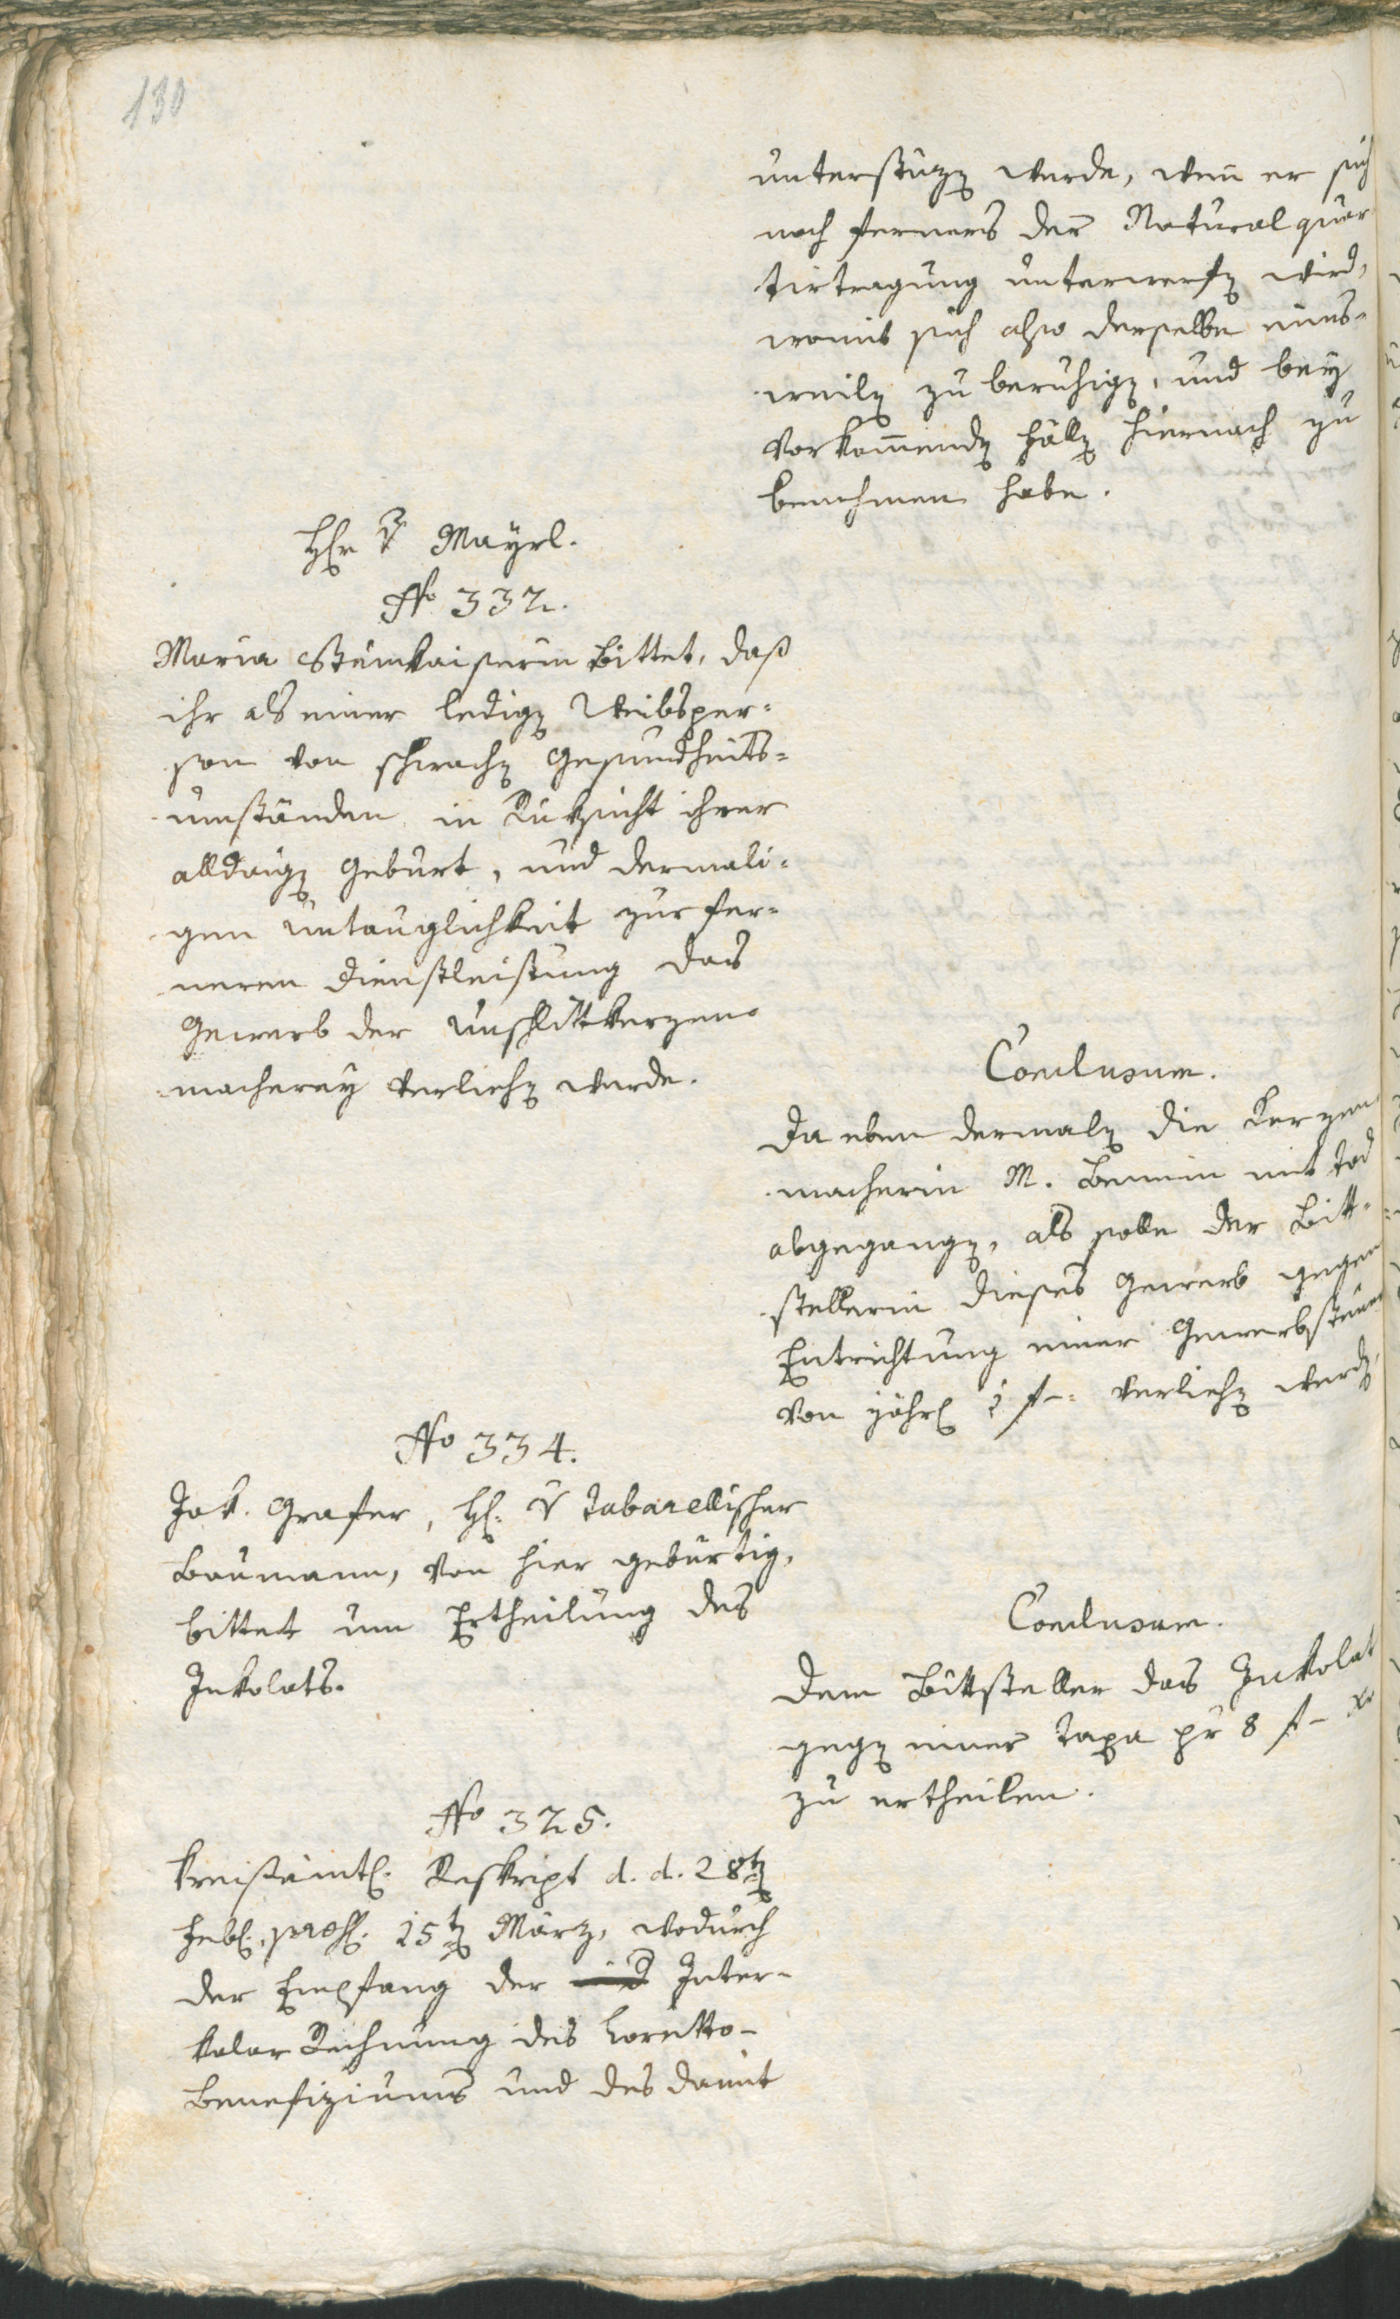 130
unterstüzen werde, wenn er sich
noch ferners der Naturalquar
tirtragung unterwerfen wird,
womit sich also derselbe eins-
weilen zu beruhigen, und bey
vorkommenden Fällen hiernach zu
benehmen habe.
Hr v Mayrl.
No 332.
Maria Steinkaiserin bittet, daß
ihr als einer ledigen Weibsper-
son von schwachen Gesundheits-
umständen in Rüksicht ihrer
alldaigen Geburt, und dermali-
gen Untauglichkeit zur fer-
neren Dienstleistung das
Gewerb der Unschlittkerzen-
macherey verliehen werde.
Conclusum.
Da eben dermalen die Kerzen
macherin M. mit Tod
abgegangen, als solle der Bitt-
stellerin dieses Gewerb gegen
Entrichtung einer Gewerbsteuer
von jährl 1 f -: verliehen werden.
No 334.
Jak. Grafer, H. v Tabarellischer
Baumann, von hier gebürtig,
bittet um Ertheilung des
Inkolats.
Conclusum.
Dem Bittsteller das Inkolat
gegen einer Taxa pr 8 f - xr
zu ertheilen.
No 325.
Kreisämtl. Reskript d. d. 28ten
Febl. præs. 15ten März, wodurch
der Empfang der Inter-
kalar Rechnung des Loretto-
Benefiziums und des damit